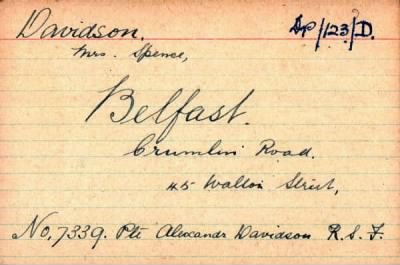 Davidson. Dp/123/D.
Mrs. Spence,
Belfast.
Crumlin Road.
45 Walton Street,
No, 7339. Pte Alexandr Davidson R. S. F.